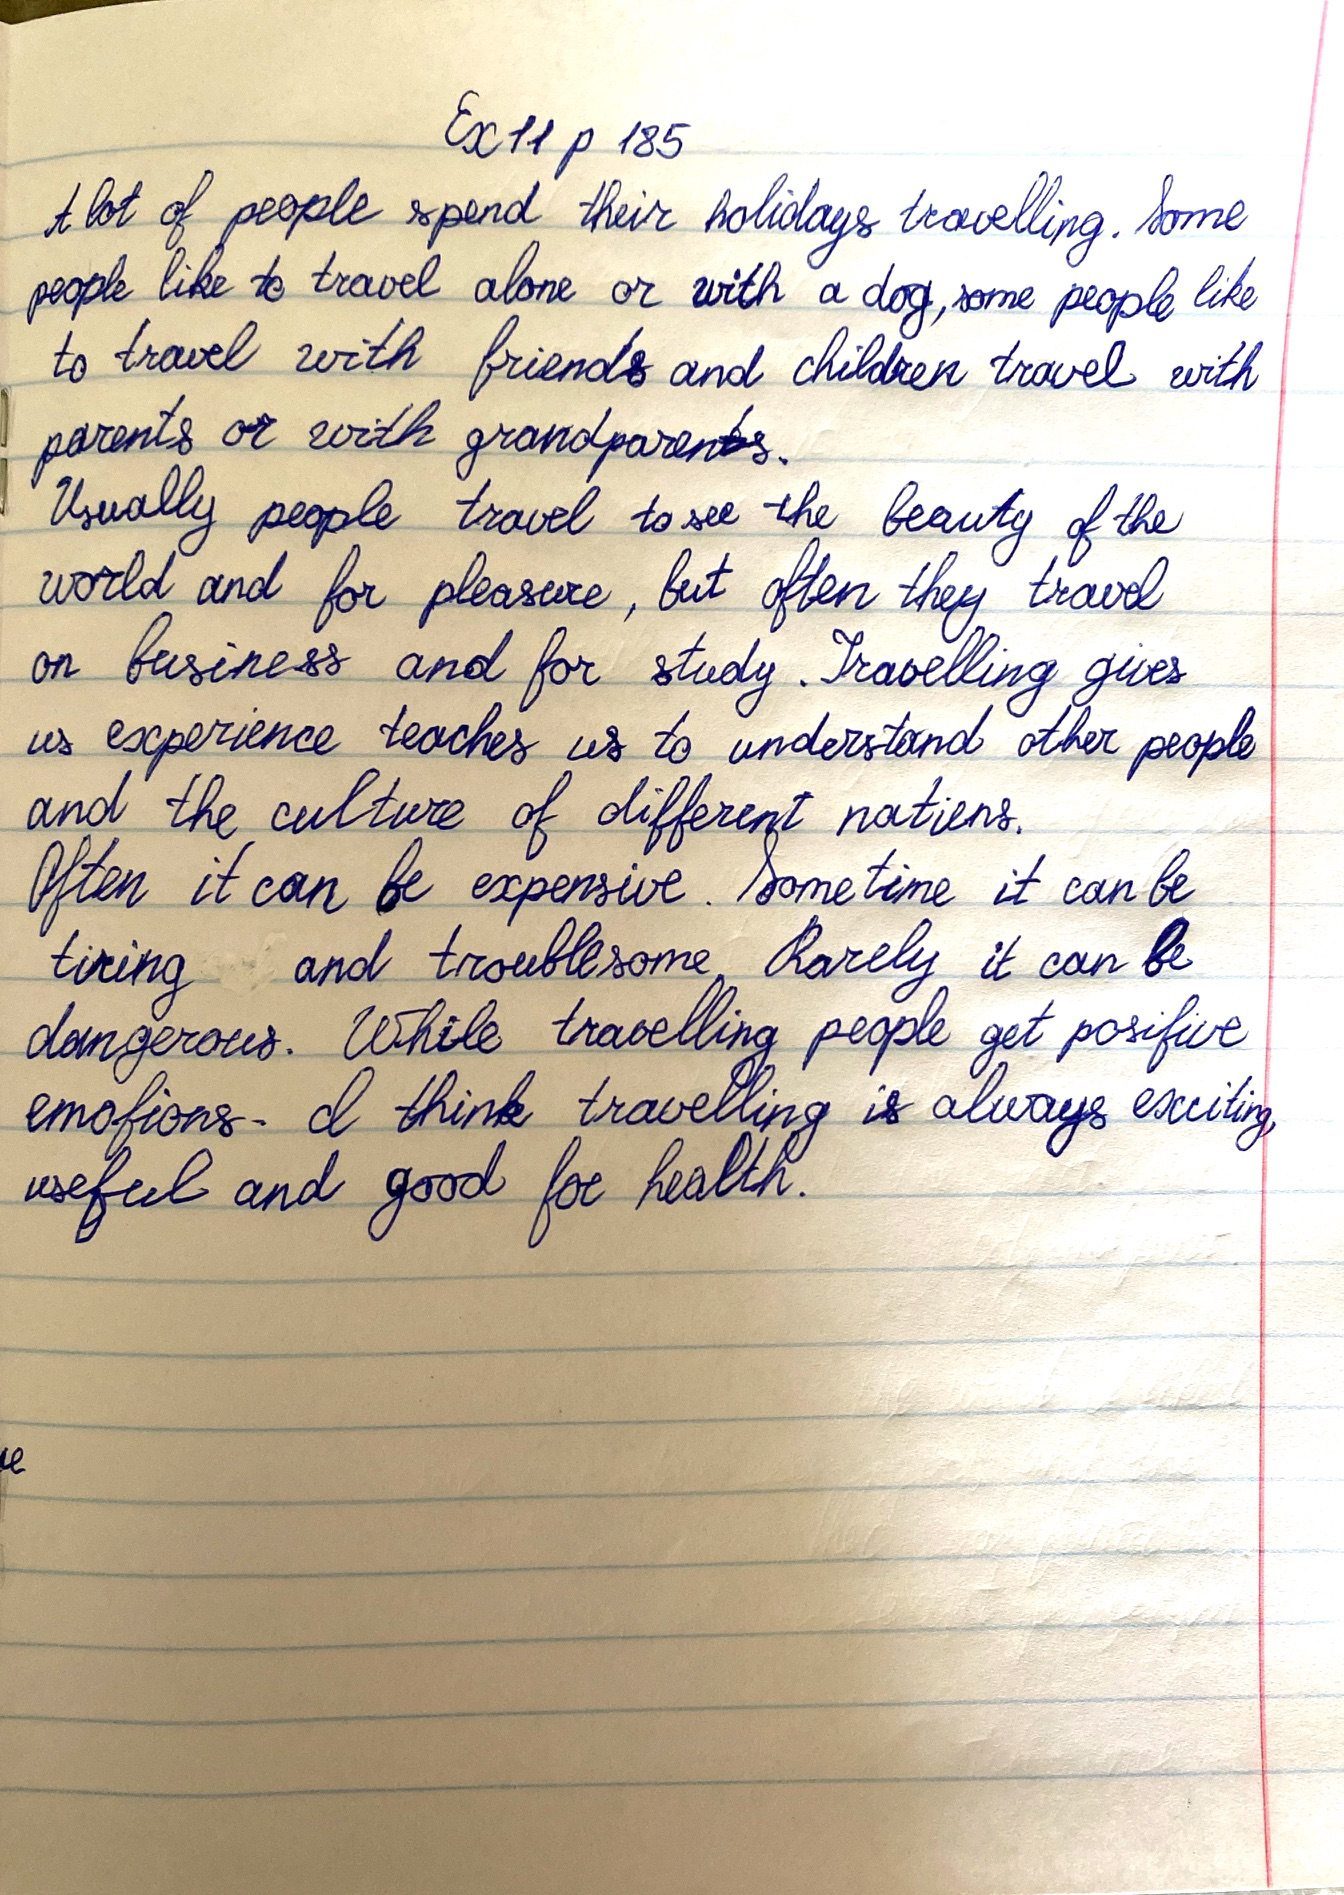 Ex 11 p 185
A lot of people spend their holidays travelling. Some
people like to travel alone or with a dog, some people like
to travel with friends and children travel with
parents or with grandparents.
Usually people travel to see the beauty of the
world and for pleasure, but often they travel
on business and for study. Travelling gives
us experience teaches us to understand other people
and the culture of different nations.
Often it can be expensive. Sometime it can be
tiring and troublesome. Rarely it can be
dangerous. While travelling people get positive
emotions. I think travelling is always exciting,
useful and good for health.